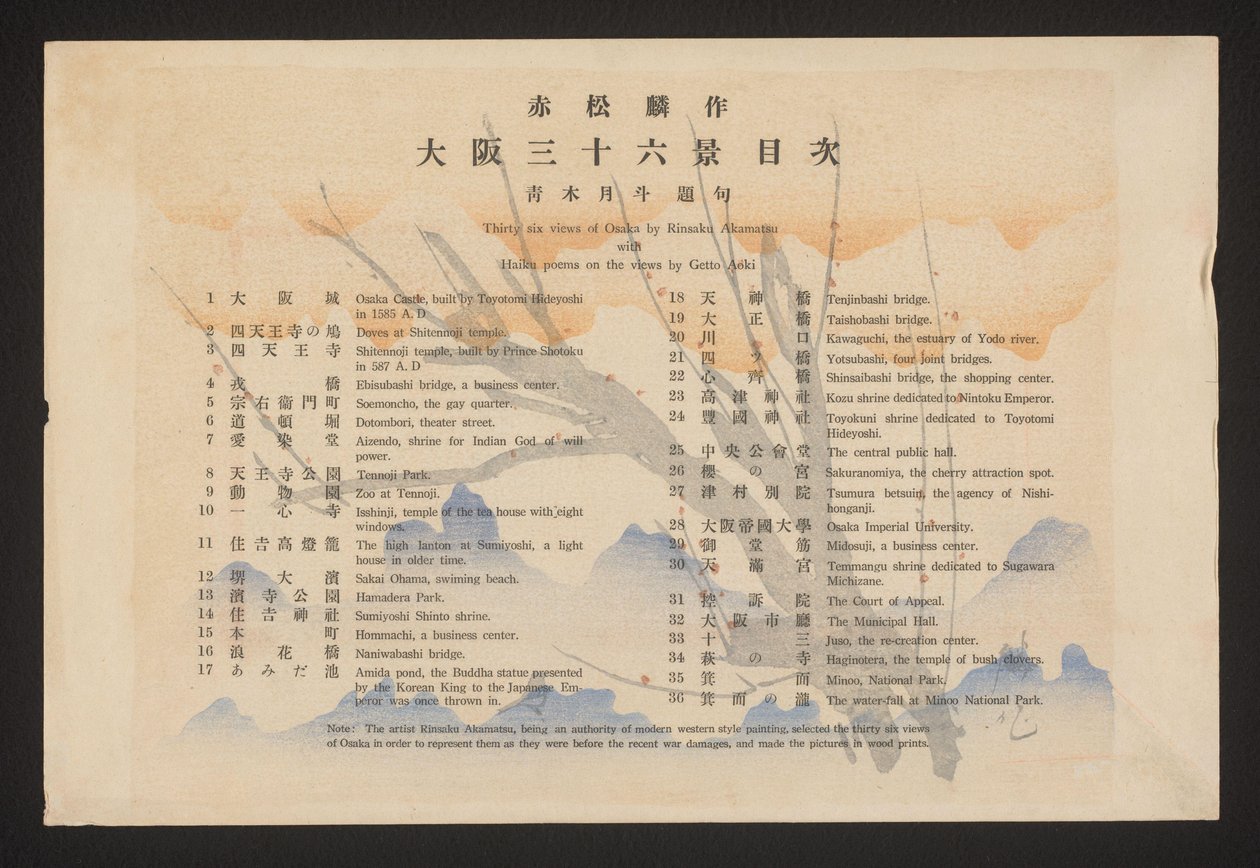 赤松麟作
大阪三十六景目次
靑木月斗題句
Thirty six views of Osaka by Rinsaku Akamatsu
with
Haiku poems on the views by Getto Aoki
1 大阪城 Osaka Castle, built by Toyotomi Hideyoshi
in 1585 A. D
2 四天王寺の鳩 Doves at Shitennoji temple.
3 四天王寺 Shitennoji temple, built by Prince Shotoku
in 587 A. D
4 戎橋 Ebisubashi bridge, a business center.
5 宗右衞門町 Soemoncho, the gay quarter.
6 道頓堀 Dotombori, theater street.
7 愛染堂 Aizendo, shrine for Indian God of will
power.
8 天王寺公園 Tennoji Park.
9 動物園 Zoo at Tennoji.
10 一心寺 Isshinji, temple of the tea house with eight
windows.
11 住吉高燈籠 The high lanton at Sumiyoshi, a light
house in older time.
12 堺大濱 Sakai Ohama, swiming beach.
13 濱寺公園 Hamadera Park.
14 住吉神社 Sumiyoshi Shinto shrine.
15 本町 Hommachi, a business center.
16 浪花橋 Naniwabashi bridge.
17 あみだ池 Amida pond, the Buddha statue presented
by the Korean King to the Japanese Em-
peror was once thrown in.
18 天神橋 Tenjinbashi bridge.
19 大正橋 Taishobashi bridge.
20 川口 Kawaguchi, the estuary of Yodo river.
21 四ツ橋 Yotsubashi, four joint bridges.
22 心齊橋 Shinsaibashi bridge, the shopping center.
23 高津神社 Kozu shrine dedicated to Nintoku Emperor.
24 豐國神社 Toyokuni shrine dedicated to Toyotomi
Hideyoshi.
25 中央公會堂 The central public hall.
26 櫻の宮 Sakuranomiya, the cherry attraction spot.
27 津村別院 Tsumura betsuin, the agency of Nishi-
honganji.
28 大阪帝國大學 Osaka Imperial University.
29 御堂筋 Midosuji, a business center.
30 天滿宮 Temmangu shrine dedicated to Sugawara
Michizane.
31 控訴院 The Court of Appeal.
32 大阪市廳 The Municipal Hall.
33 十三 Juso, the re-creation center.
34 萩の寺 Haginotera, the temple of bush clovers.
35 箕面 Minoo, National Park.
36 箕面の瀧 The water-fall at Minoo National Park.
Note: The artist Rinsaku Akamatsu, being an authority of modern western style painting, selected the thirty six views
of Osaka in order to represent them as they were before the recent war damages, and made the pictures in wood prints.